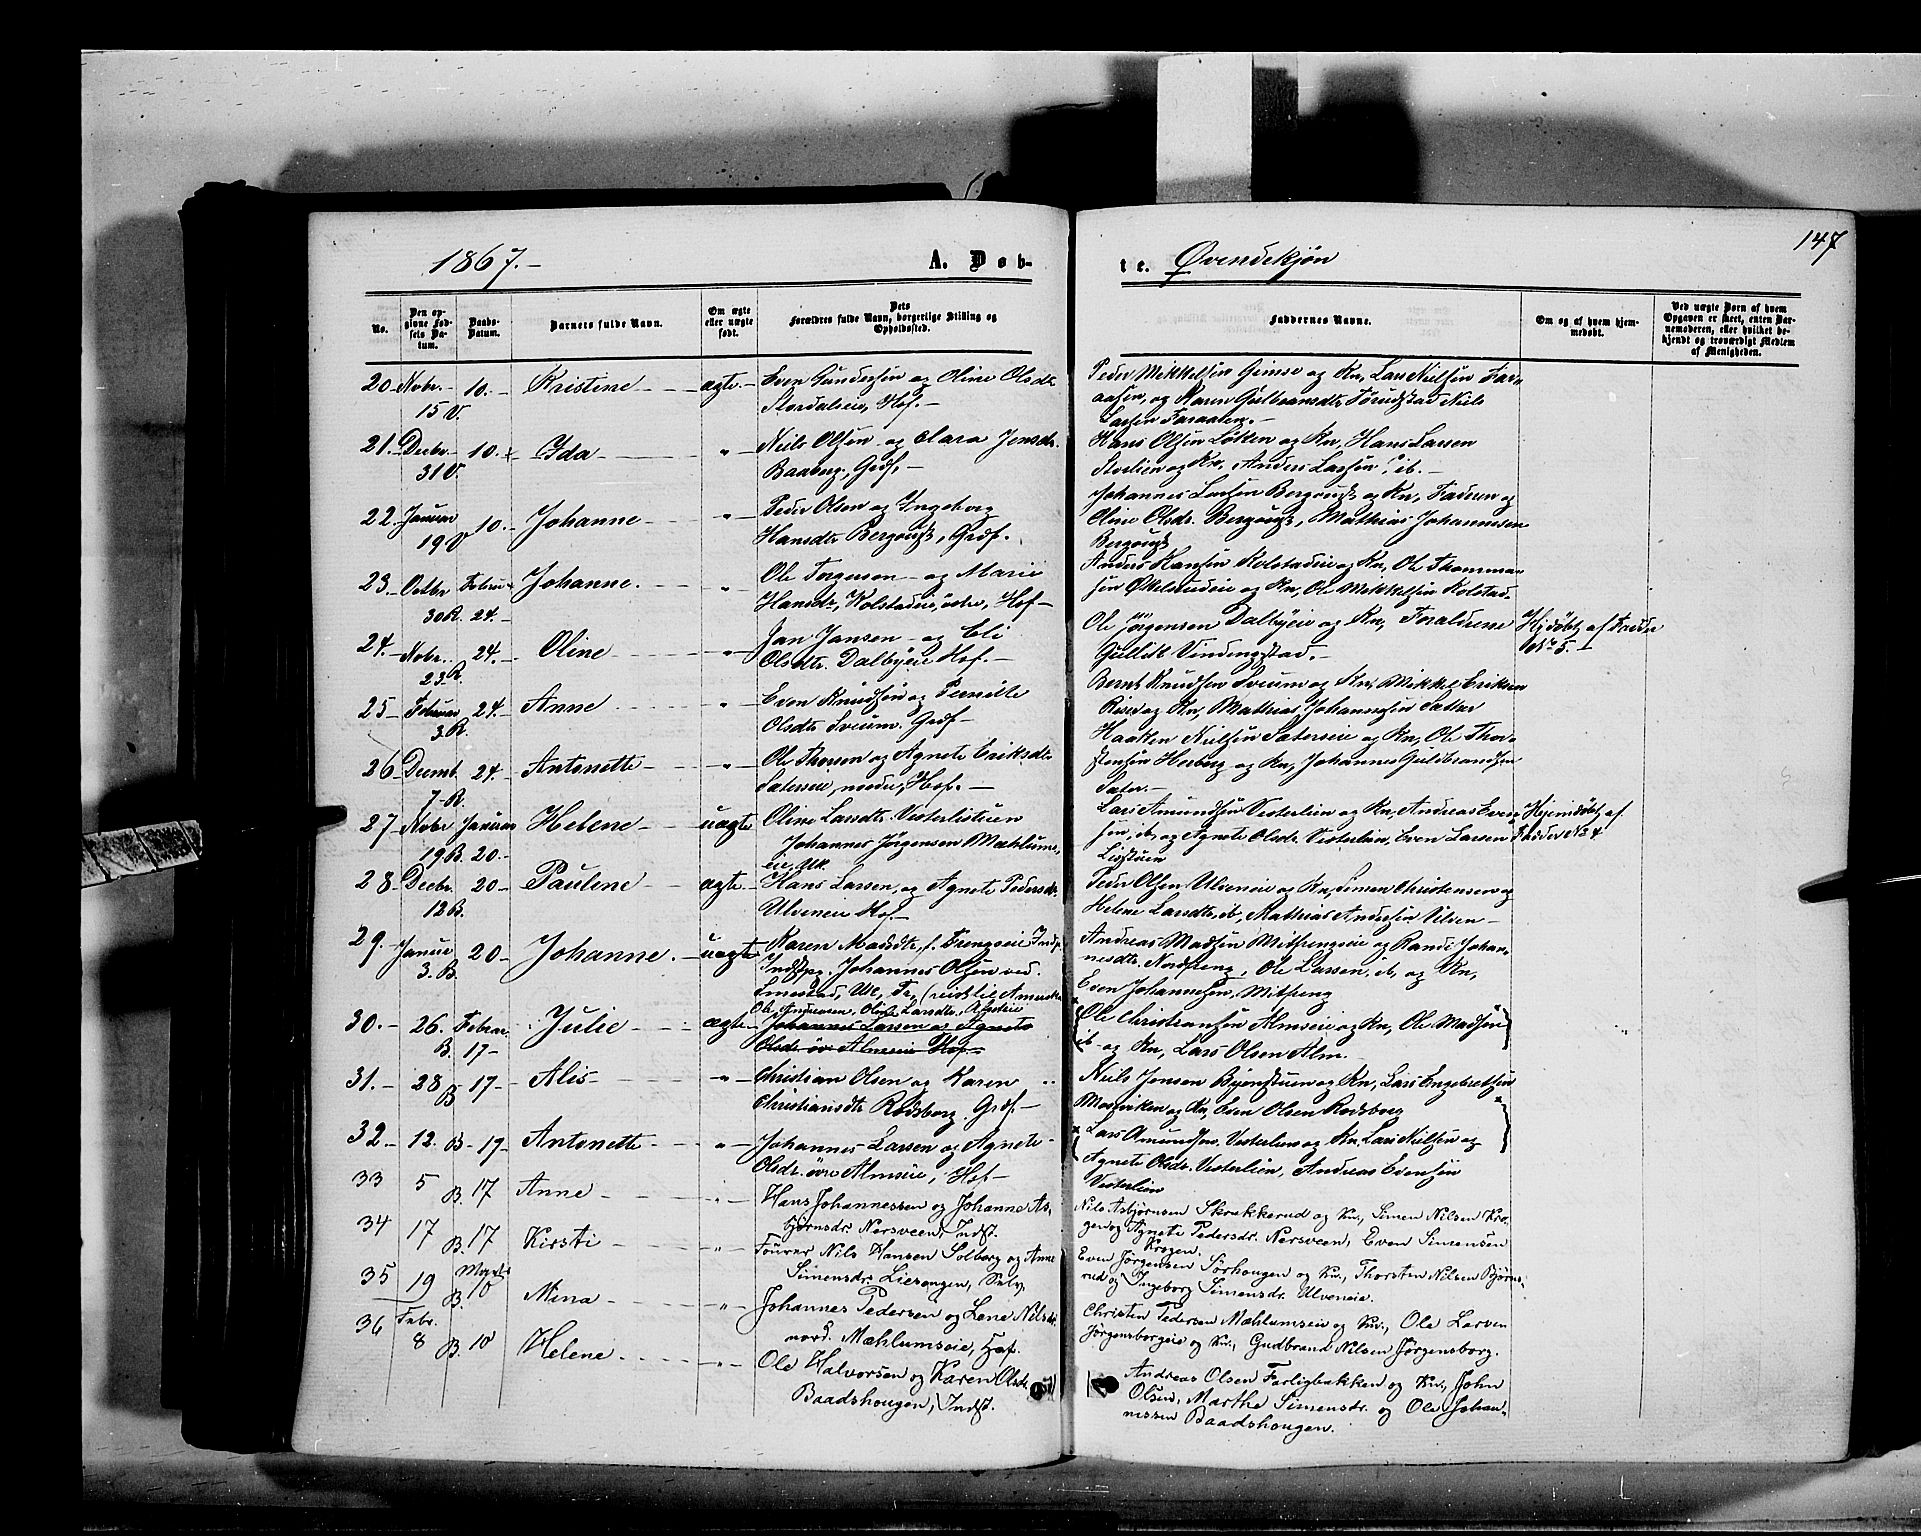 1867.-
A. Døb-
te. Qvindekjøn
147
No.
Den opgivne Fødsels Datum.
Daabs-Datum.
Barnets fulde Navn.
Om ægte eller uægte født.
Dets Forældres fulde Navn, borgerlige Stilling og Opholdssted.
Faddernes Navne.
Om og af hvem hjemmedøbt.
Ved uægte Børn af hvem Opgaven er skeet, enten Barnemoderen, eller hvilket bekjendt og troværdigt Medlem af Menigheden.
20 Novbr. 15 V. 10.- Kristine ægte Even Gundersen og Oline Olsdr.
Stordalseie, Hof.-
Peder Mikkelsen Gimse og Kn, Lars Nielsen Far-
aasen, og Karen Gulbrandsdtr. Niels
Larsen Faraasen.-
21. Decbr. 31 V. 10. Ida " Niels Olsen og Clara Jensdr.
Baaberg, Grdf.-
Hans Olsen Løken og Kn, Hans Larsen
Storlien og Kn, Anders Larsen ib.-
22. Januar 19 V 10.- Johanne " Peder Olsen og Ingeborg
Hansdtr Bergout, Grdf.
Johannes Larsen og Kn, Faderen og
Oline Olsdr. Mathias Johannesen
23. Octbr 30 R. Febru 24.- Johanne. " Ole Torgersen og Marie
Hansdr, Kolstadeie, Hof-
Anders Hansen Kolstadeie og Kn, Ole Thomma-
sen og Kn, Ole Mikkelsen Kolstad.
24. Novbr. 23 R. 24.- Oline " Jan Jansen og Eli
Olsdtr. Dalbyeie Hof.-
Ole Jörgensen Dalbyeie og Kn, Forældrene
Gullik Vindingstad.-
Hjdøbt af Fadder
No 5.
25 Februar 3. R. 24.- Anne " Even Knudsen og Pernille
Olsdtr Sveum. Grdf-
Bernt Knudsen Sveum og Kn, Mikkel Eriksen
Risen og Kn, Mathias Johannesen Sæter
26 Decmb. 7-R. 24.- Antonette " Ole Thorsen og Agnete Eriksdr
Sæterseie, nordre, Hof.-
Haaken Nielsen Sæterseie og Kn, Ole Thor-
stensen Herberg og Kn, Johannes Guldbrandsen
Sæter.-
27 Novbr 19 B. Januar 20.- Helene uægte Oline Larsdtr. Vesterlistuen
Johannes Jörgensen Mæhlums-
eie, Uk.
Lars Amundsen Vesterlien og Kn, Andreas Even-
sen, ib, og Agnete Olsdr. Vesterlien, Even Larsen
Listuen
Hjemdøbt af
Fadder No 4
28 Decbr. 12 B. 20- Pauline ægte Hans Larsen, og Agnete Pedersdr.
Ulveneie Hof-
Peder Olsen Ulveneie og Kn, Simen Christensen og
Helene Larsdtr, ib, Mathias Andersen Ulven-
29. Januar 3. B. 20- Johanne. uægte Karen Madsdtr, f. Trengseie Indf.
Johannes Olsen ved.
Smestad, Uk,
Andreas Madsen og Randi Johan-
nesdtr. Nordseng, Ole Larsen, ib, og Kn,
Even Johannesen, Mitseng
30.- 26. B. Februar. 17- Julie ægte Ole Andersen, Oline Larsdtr., Almseie
Johannes Larsen og Agnete
Olsdr. öv. Almseie Hof-
Ole Christiansen Almseie og Kn, Ole Madsen
ib. og Kn, Lars Olsen Alm.
31.- 28 B 17- Alis- " Christian Olsen og Karen
Christiansdtr Rodsberg. Grdf-
Niels Jensen og Kn, Lars Engebretsen
og Kn, Even Olsen Rodsberg
32- 12. B- 17- Antonette " Johannes Larsen og Agnete
Olsdr. övre Almseie, Hof-
Lars Amundsen. Vesterlien og Kn. Lars Nielsen og
Agnete Olsdr. Vesterlien, Andreas Evensen
Vesterlien
33 5 B. 17 Anne " Hans Johannessen og Johanne As-
bjørnsdr. Nersveen, Indst.
Nils Asbjørnsen Skrakkerud og Kn, Simen Nilsen Kro-
gen og Agnete Pedersdr. Nersveen, Even Simensen
Krogen.
34 17 B. 17 Kirsti " Tourer Nils Hansen Solberg og Anne
Simensdr. Liesongen, Selv.
Even Jørgensen Sørhougen og Kn, Thorsten Nilsen Bjørns-
rud og Ingeborg Simensdr. Ulveneie.
35 19 B. Marts 10 Mina " Johannes Pedersen og Lene Nilsdr.
nord. Mæhlumseie, Hof.
Christen Pedersen Mæhlumseie og Kn., Ole Larsen
Jørgensborgeie og Kn., Gudbrand Nilsen Jørgensborg.
36 Febr. 8 B. 10 Helene " Ole Halvorsen og Karen Olsdr.
Baadshougen, Indst.
Andreas Olsen Farligbakken og Kn., John
Olsen, Marthe Simensdr. og Ole Johan-
nessen Baadshougen.